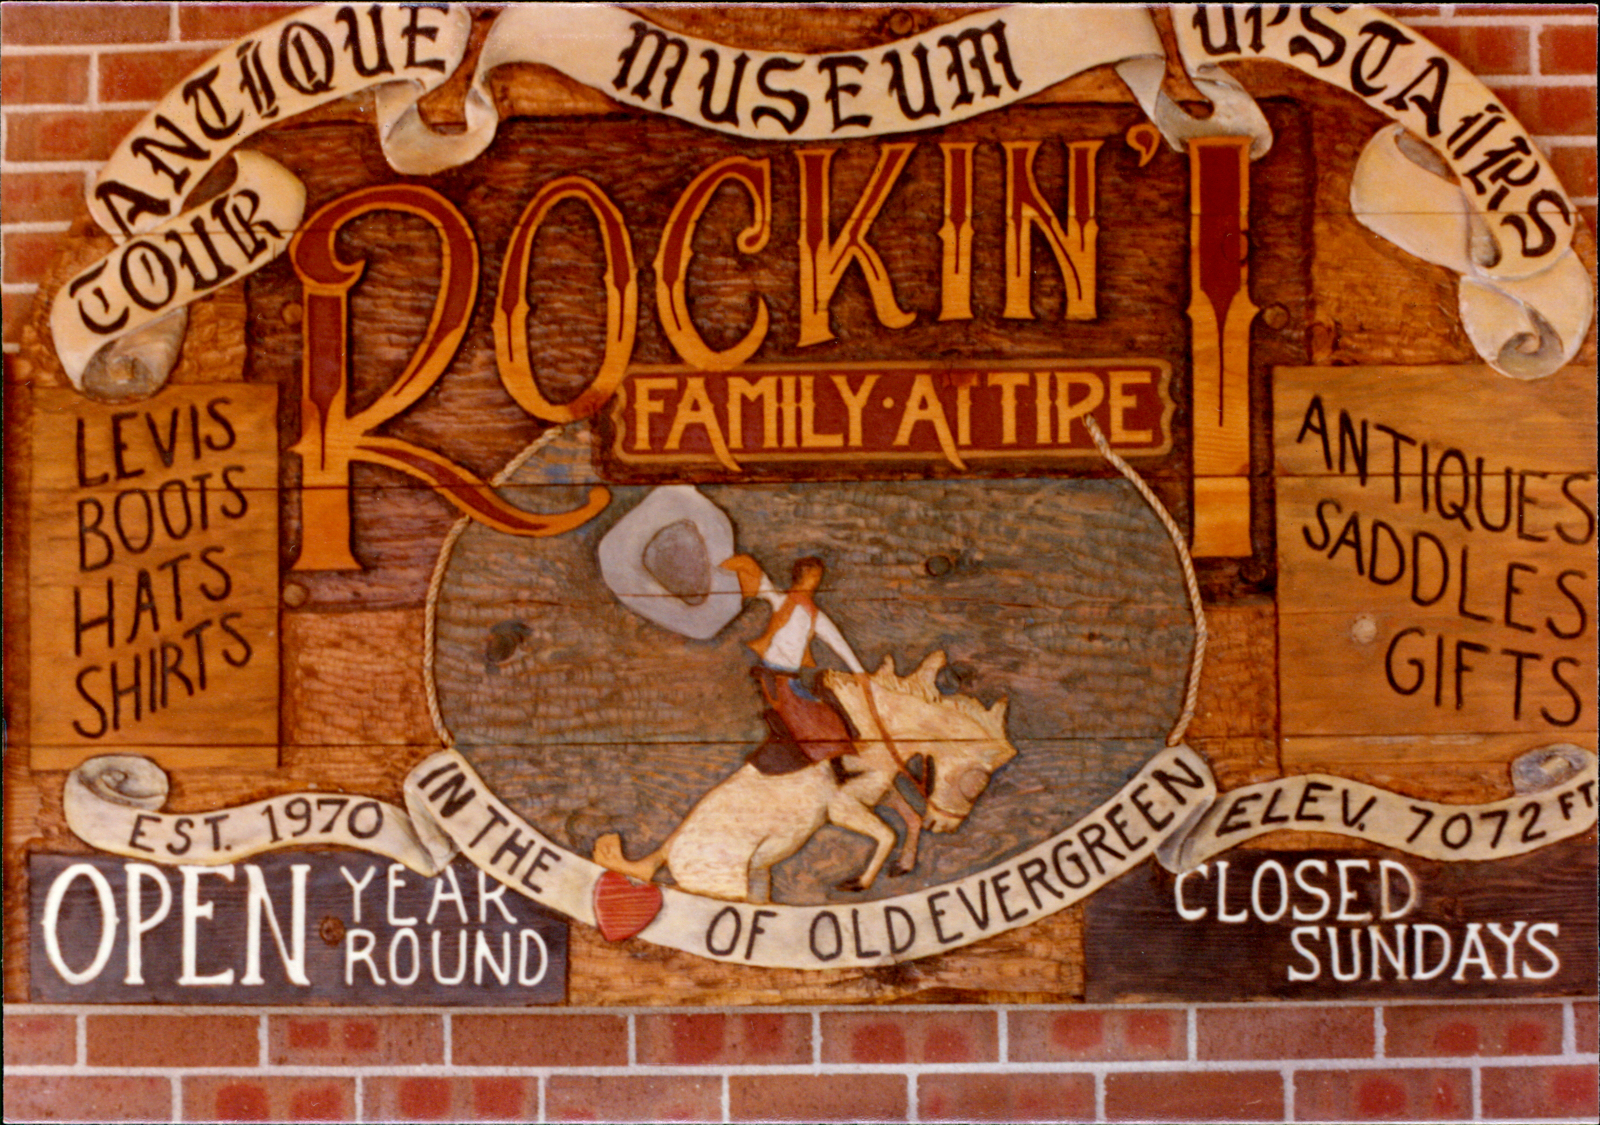 TOUR
ANTIQUE MUSEUM UPSTAIRS
ROCKIN' R
FAMILY · ATTIRE
LEVIS
BOOTS
HATS
SHIRTS
ANTIQUES
SADDLES
GIFTS
EST. 1970
IN THE ♥ OF OLD EVERGREEN
ELEV. 7072 FT
OPEN YEAR
ROUND
CLOSED
SUNDAYS